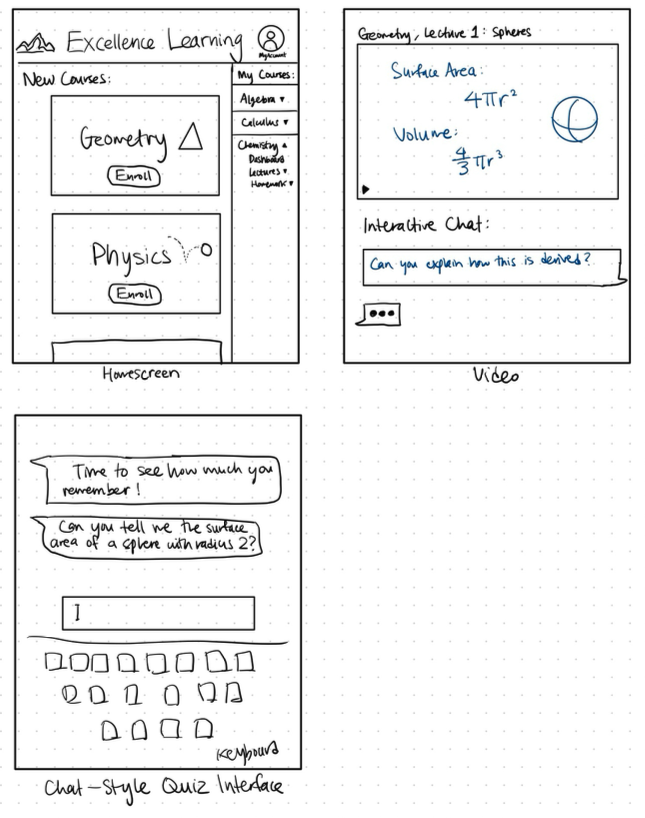 Excellence Learning
My Account
New Courses:
Geometry
Enroll
Physics
Enroll
My Courses:
Algebra ▾
Calculus ▾
Chemistry ▴
Dashboard
Lectures ▾
Homework ▾
Homescreen
Geometry, Lecture 1: Spheres
Surface Area:
4πr²
Volume:
4/3 πr³
Interactive Chat:
Can you explain how this is derived?
Video
Time to see how much you
remember!
Can you tell me the surface
area of a sphere with radius 2?
I
Keyboard
Chat-Style Quiz Interface